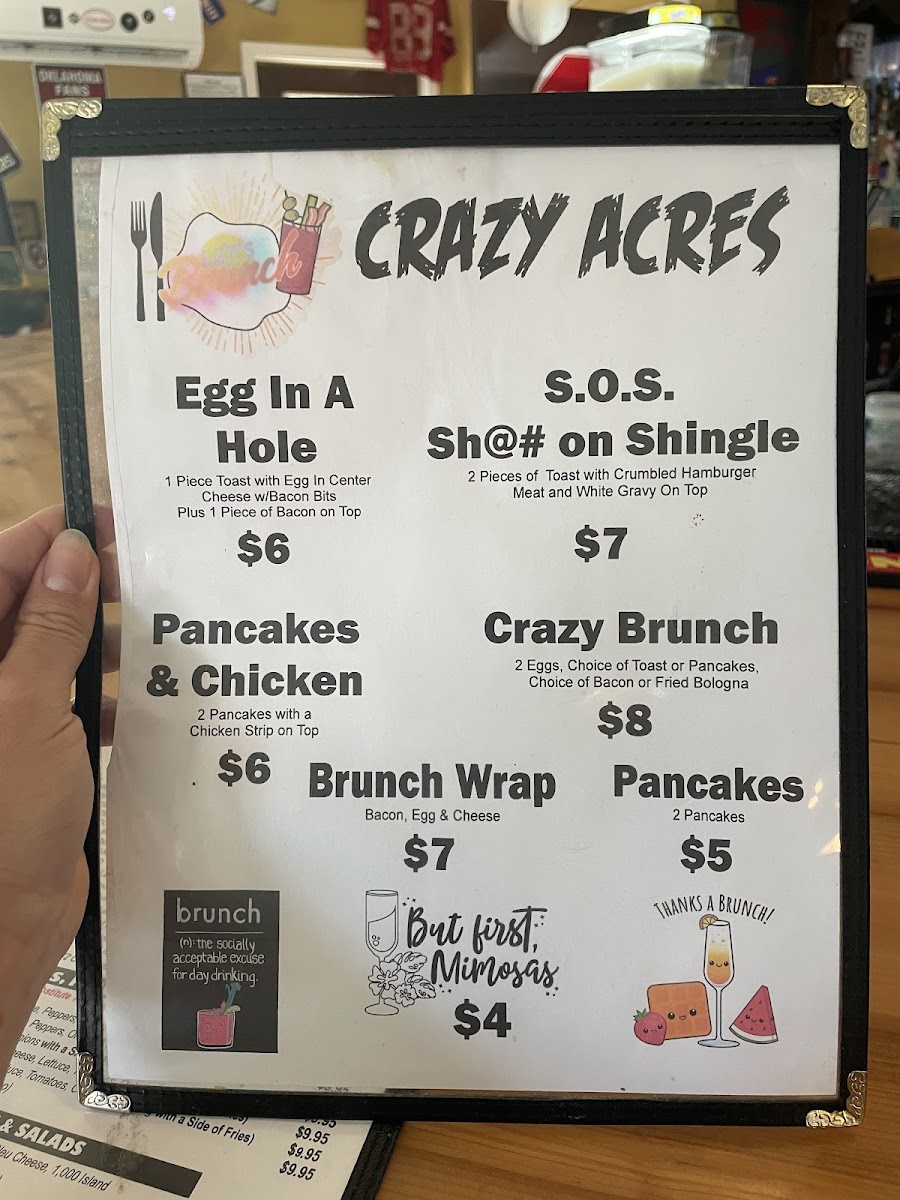 OKLAHOMA
FANS
89
Brunch
CRAZY ACRES
Egg In A
Hole
1 Piece Toast with Egg In Center
Cheese w/Bacon Bits
Plus 1 Piece of Bacon on Top
$6
S.O.S.
Sh@# on Shingle
2 Pieces of Toast with Crumbled Hamburger
Meat and White Gravy On Top
$7
Pancakes
& Chicken
2 Pancakes with a
Chicken Strip on Top
$6
Crazy Brunch
2 Eggs, Choice of Toast or Pancakes,
Choice of Bacon or Fried Bologna
$8
Brunch Wrap
Bacon, Egg & Cheese
$7
Pancakes
2 Pancakes
$5
brunch
(n): the socially
acceptable excuse
for day drinking.
But first,
Mimosas
$4
THANKS A BRUNCH!
Peppers
Peppers,
with a
Lettuce,
Tomatoes,
with a Side of Fries)
$9.95
$9.95
$9.95
& SALADS
Cheese, 1,000 Island